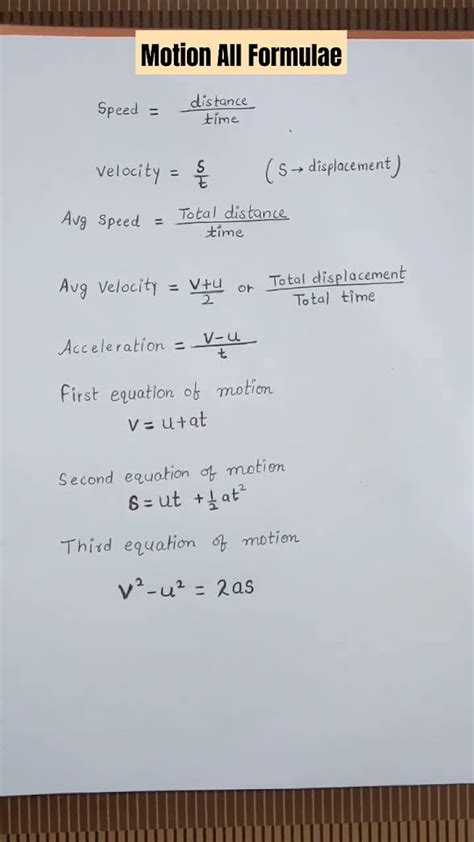 Motion All Formulae
Speed = distance/time
Velocity = S/t (S → displacement)
Avg Speed = Total distance/time
Avg Velocity = v+u/2 or Total displacement/Total time
Acceleration = v-u/t
First equation of motion
v = u+at
Second equation of motion
s = ut + 1/2 at²
Third equation of motion
v² - u² = 2as